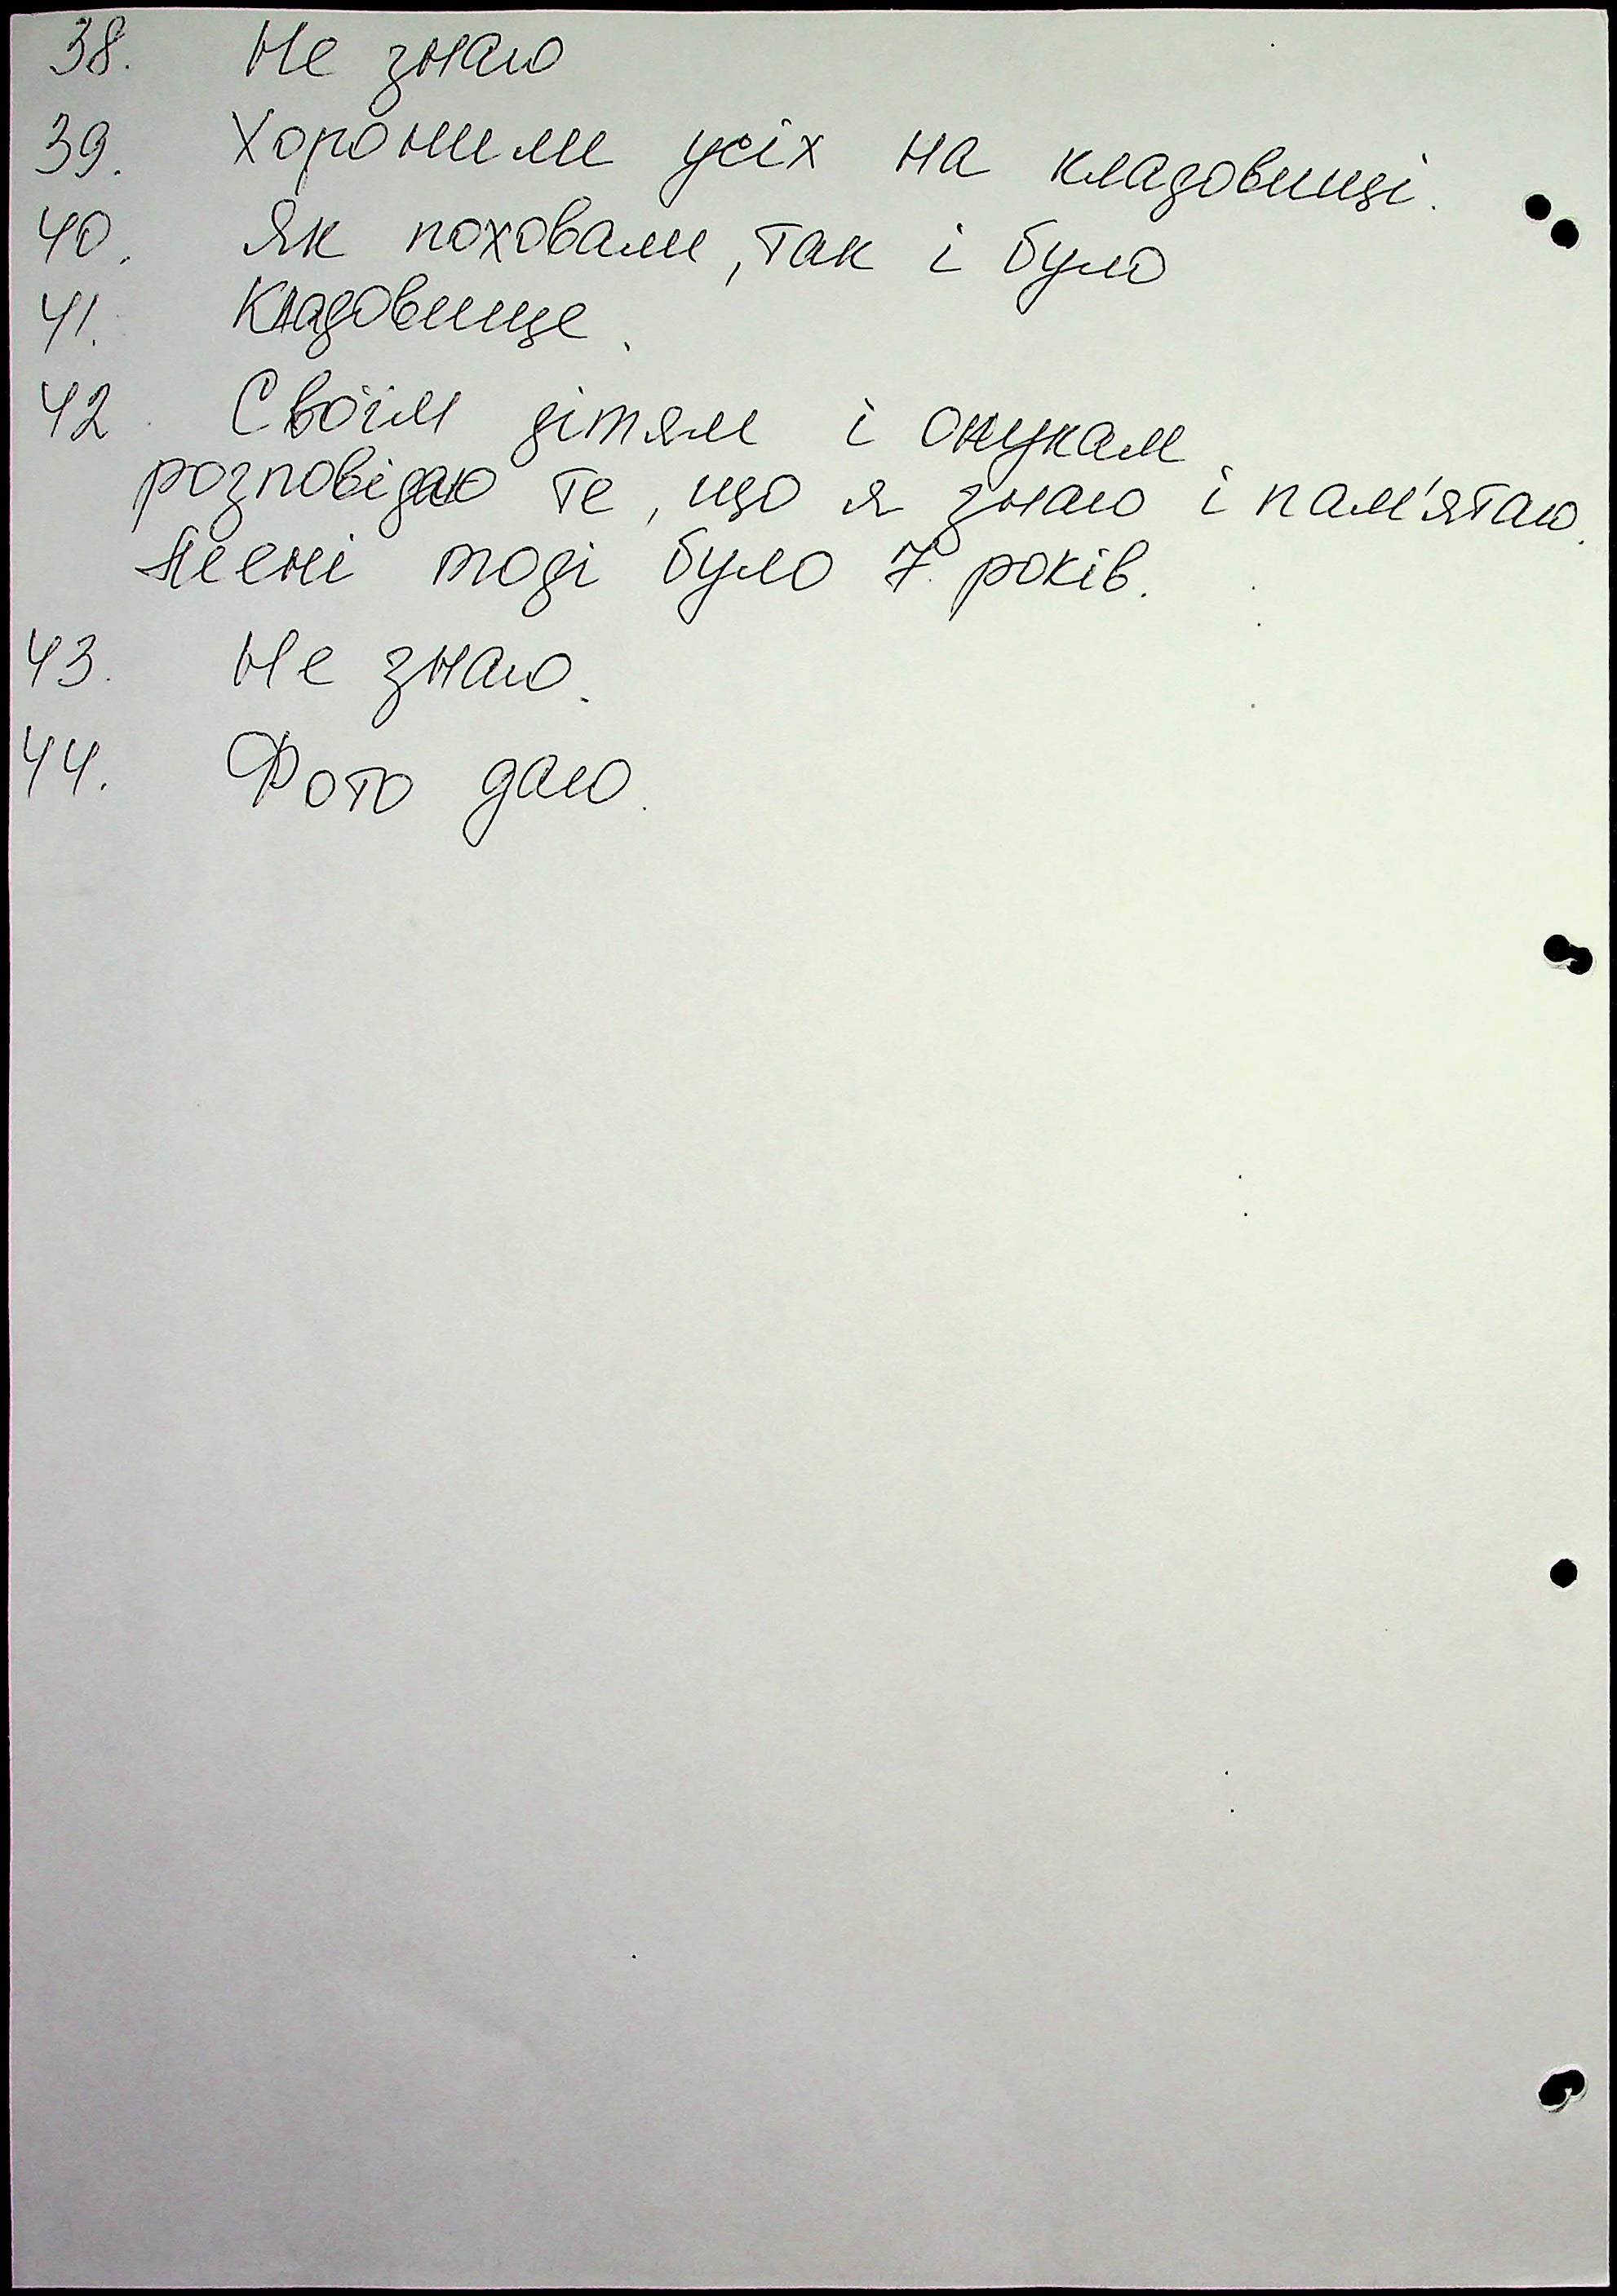 38. Не знаю
39. Хоронили усіх на кладовищі.
40. Як поховали, так і було
41. Кладовище.
42. Своїм дітям і онукам
розповідаю те, що я знаю і пам'ятаю.
Мені тоді було 7 років.
43. Не знаю.
44. Фото даю.